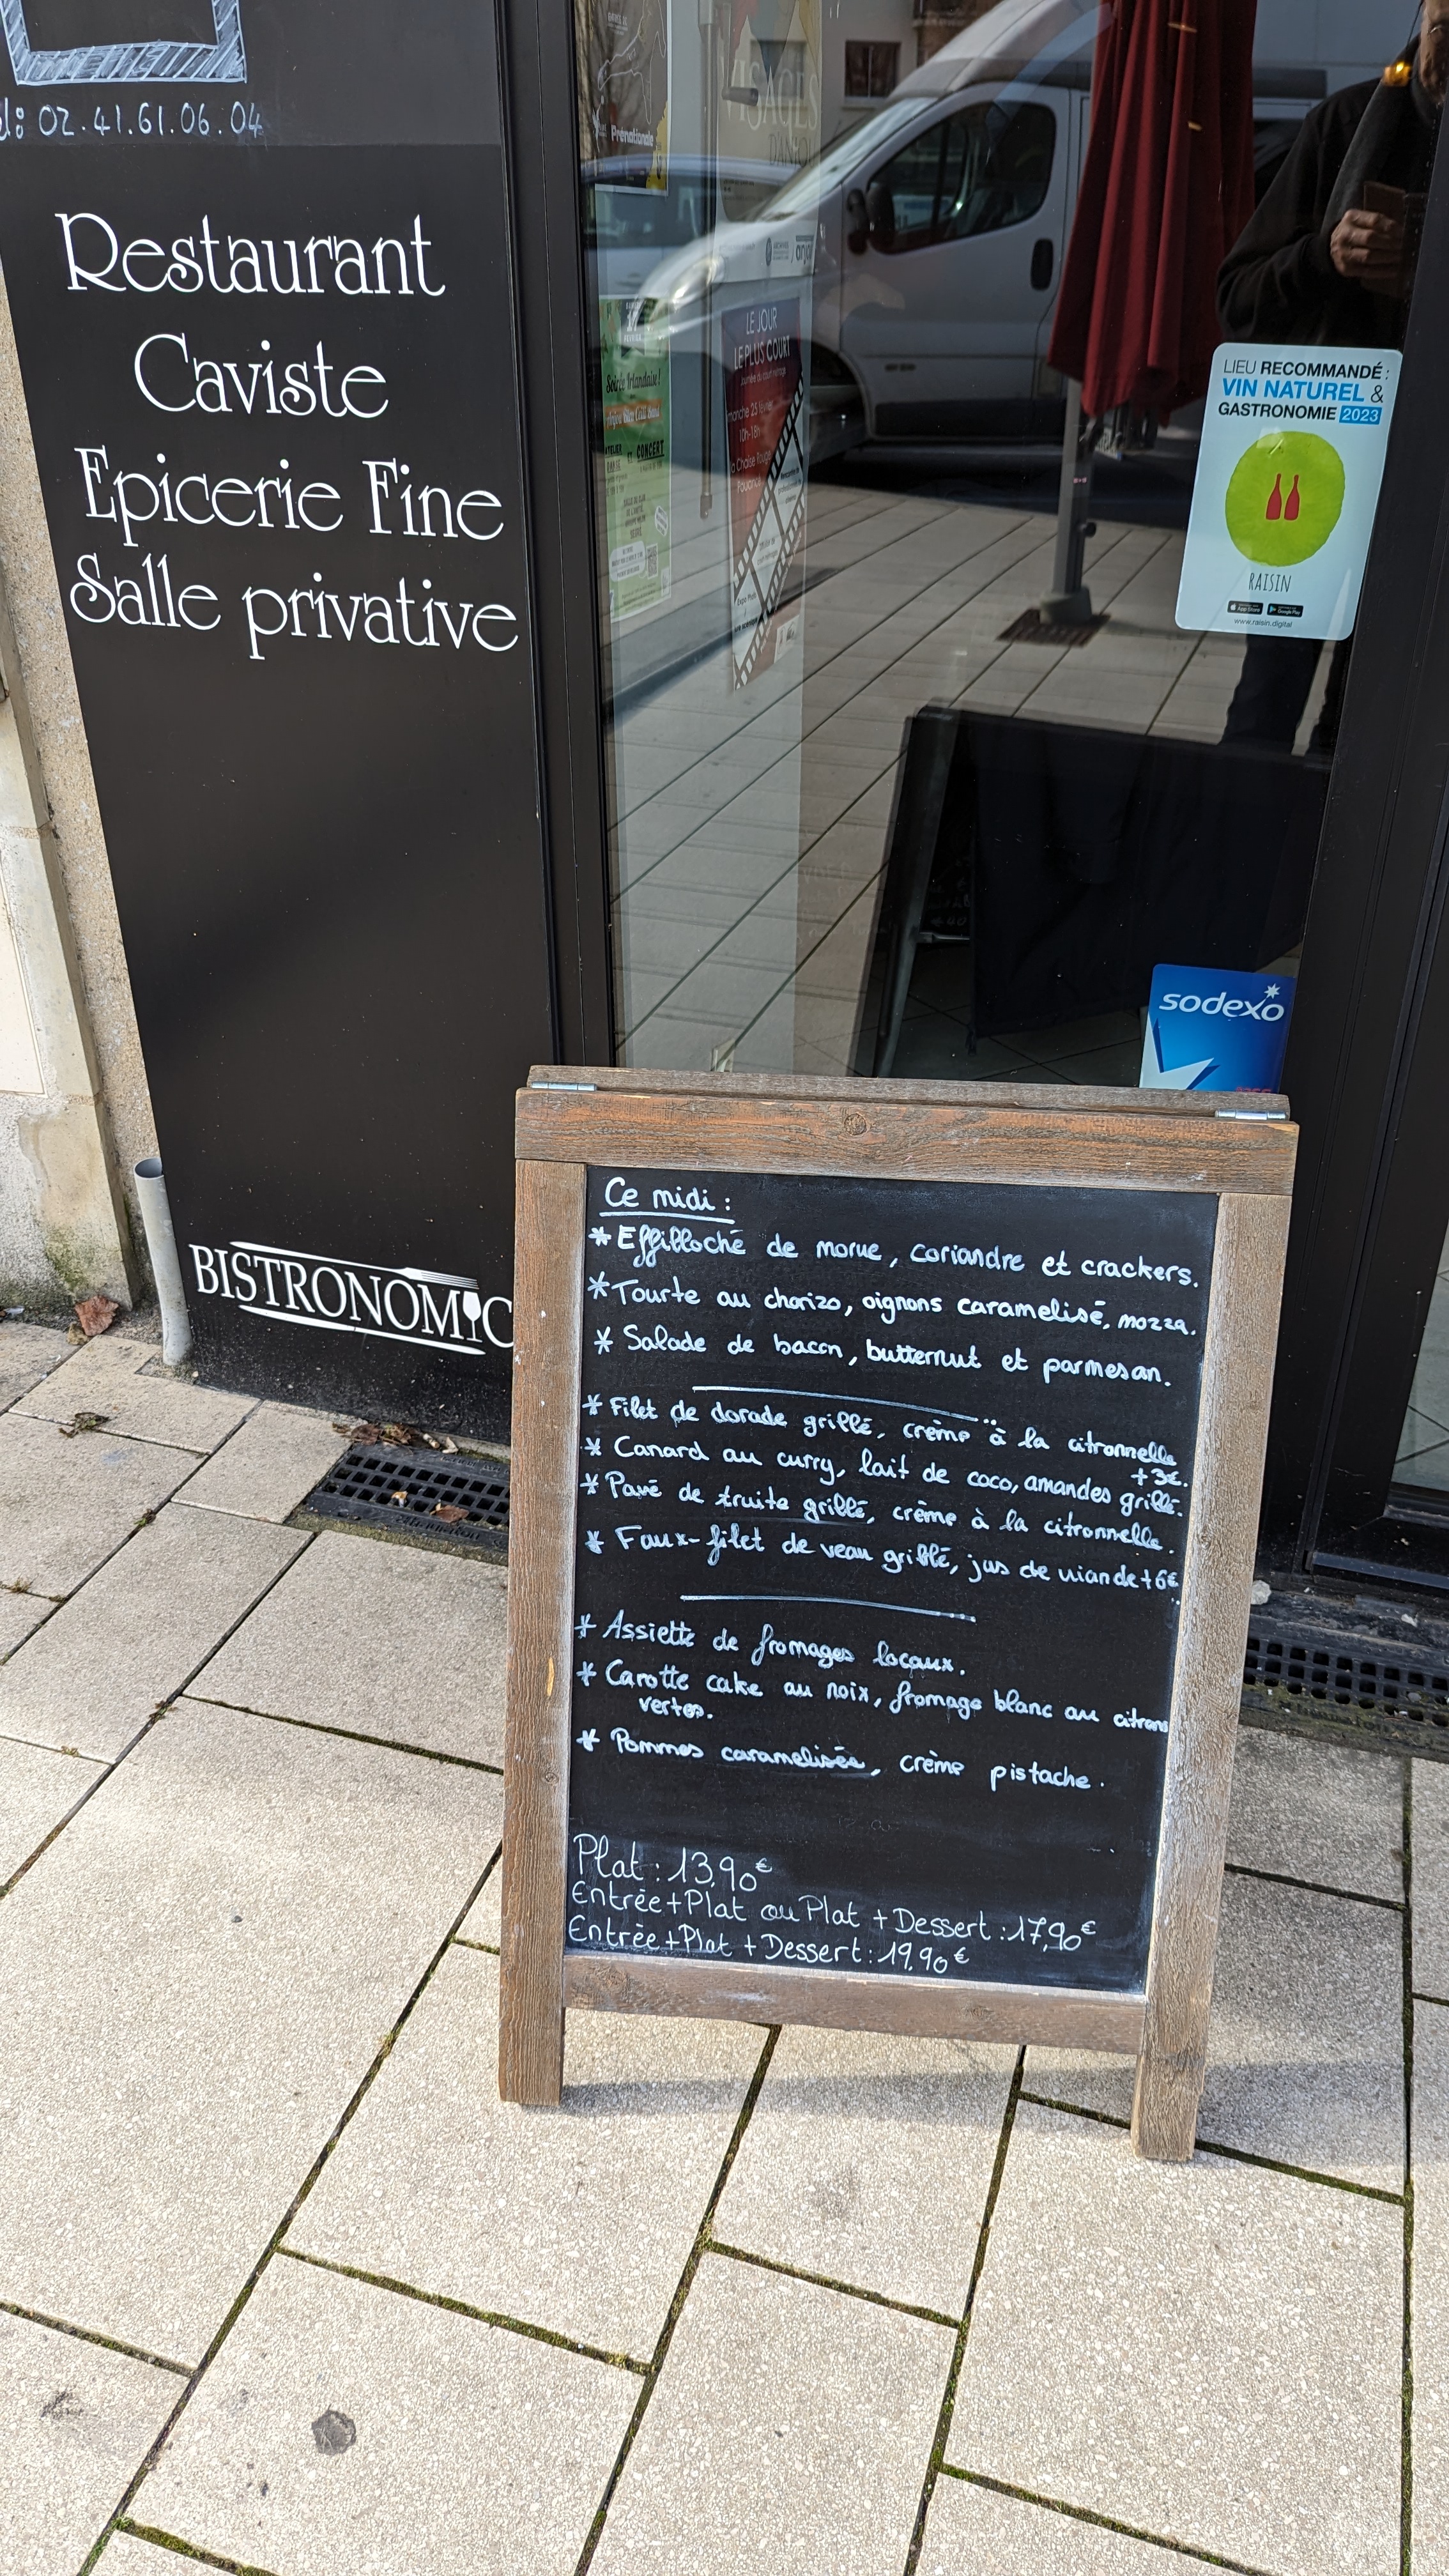 02.41.61.06.04
Restaurant
Caviste
Epicerie Fine
Salle privative
BISTRONOMIC
Prénationale
LE JOUR
LE PLUS COURT
10h-18h
La Chaise Rouge
Soirée Irlandaise !
CONCERT
LIEU RECOMMANDÉ :
VIN NATUREL &
GASTRONOMIE 2023
RAISIN
App Store
Google Play
www.raisin.digital
sodexo
Ce midi :
* Effilloché de morue, coriandre et crackers.
* Tourte au chorizo, oignons caramelisé, mozza.
* Salade de bacon, butternut et parmesan.
* Filet de dorade grillé, crème à la citronnelle
+3€.
* Canard au curry, lait de coco, amandes grillé.
* Pavé de truite grillé, crème à la citronnelle.
* Faux-filet de veau grillé, jus de viande +6€
* Assiette de fromages locaux.
* Carotte cake au noix, fromage blanc au citrons
vertes.
* Pommes caramelisée, crème pistache.
Plat : 13,90€
Entrée+Plat ou Plat + Dessert : 17,90€
Entrée+Plat + Dessert : 19,90€